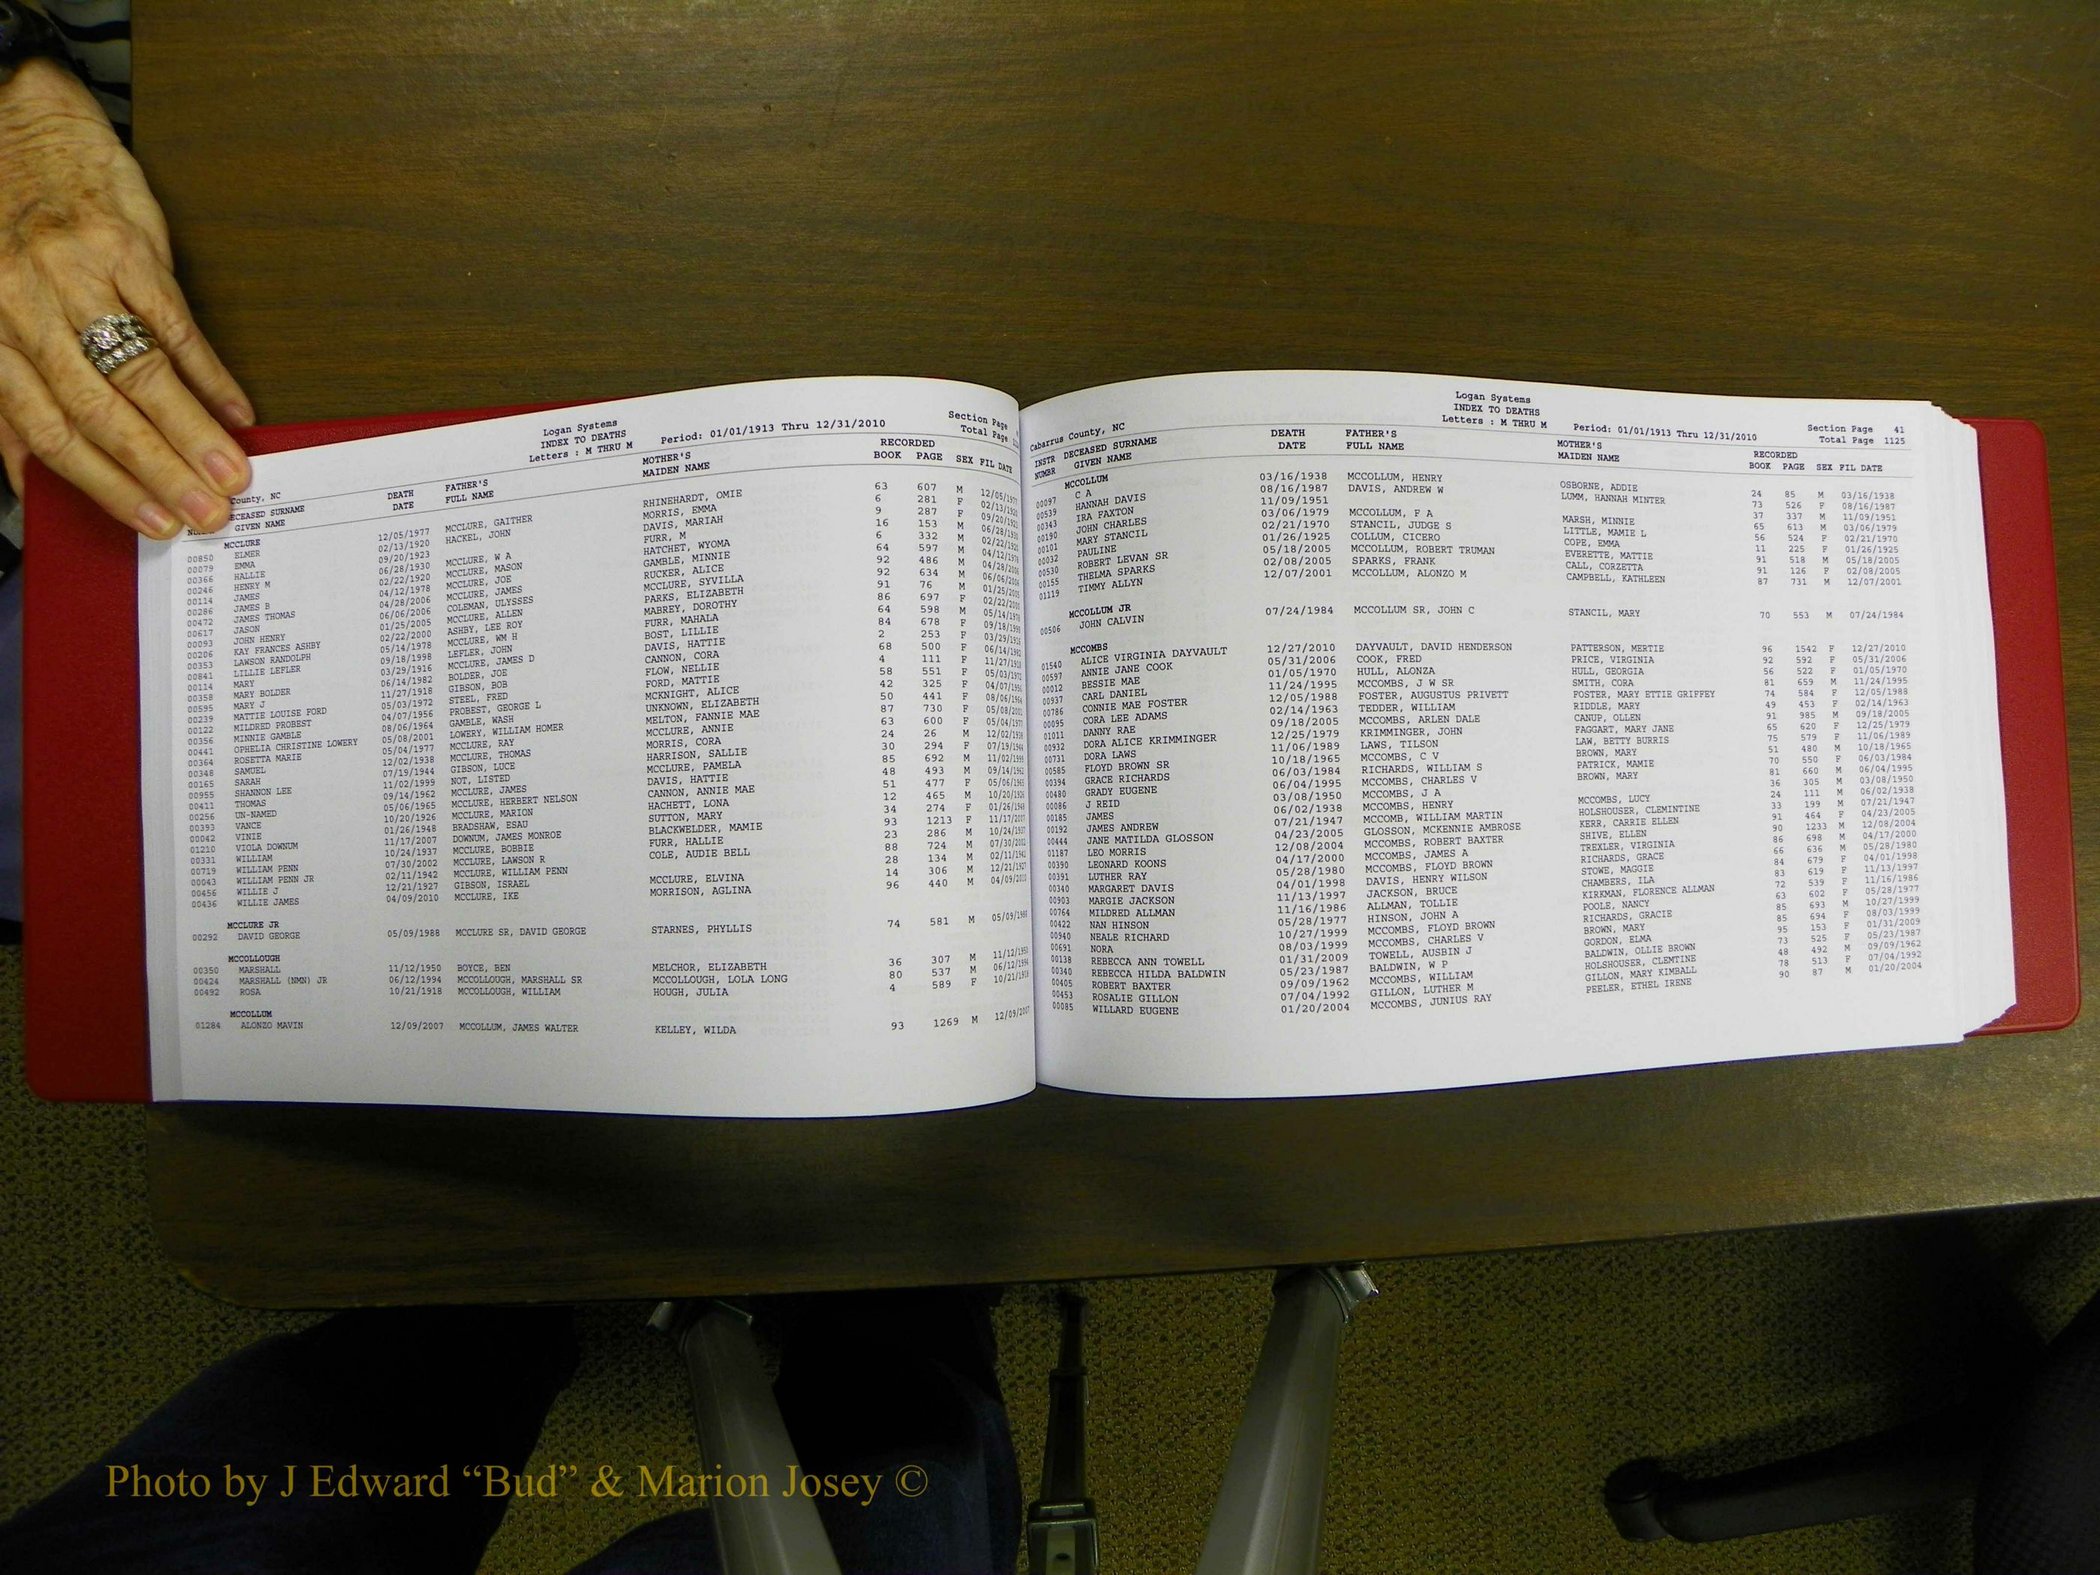 Logan Systems
INDEX TO DEATHS
Letters : M THRU M Period: 01/01/1913 Thru 12/31/2010 Section Page
County, NC Total Page
DECEASED SURNAME DEATH FATHER'S MOTHER'S RECORDED
GIVEN NAME DATE FULL NAME MAIDEN NAME BOOK PAGE SEX FIL DATE
MCCLURE
00850 ELMER 12/05/1977 MCCLURE, GAITHER RHINEHARDT, OMIE 63 607 M 12/05/1977
00079 EMMA 02/13/1920 HACKEL, JOHN MORRIS, EMMA 6 281 F 02/13/1920
00366 HALLIE 09/20/1923 DAVIS, MARIAH 9 287 F 09/20/1923
00246 HENRY M 06/28/1930 MCCLURE, W A FURR, M 16 153 M 06/28/1930
00114 JAMES 02/22/1920 MCCLURE, MASON HATCHET, WYOMA 6 332 M 02/22/1920
00286 JAMES B 04/12/1978 MCCLURE, JOE GAMBLE, MINNIE 64 597 M 04/12/1978
00472 JAMES THOMAS 04/28/2006 MCCLURE, JAMES RUCKER, ALICE 92 486 M 04/28/2006
00617 JASON 06/06/2006 COLEMAN, ULYSSES MCCLURE, SYVILLA 92 634 M 06/06/2006
00093 JOHN HENRY 01/25/2005 MCCLURE, ALLEN PARKS, ELIZABETH 91 76 M 01/25/2005
00206 KAY FRANCES ASHBY 02/22/2000 ASHBY, LEE ROY MABREY, DOROTHY 86 697 F 02/22/2000
00353 LAWSON RANDOLPH 05/14/1978 MCCLURE, WM H FURR, MAHALA 64 598 M 05/14/1978
00841 LILLIE LEFLER 09/18/1998 LEFLER, JOHN BOST, LILLIE 84 678 F 09/18/1998
00114 MARY 03/29/1916 MCCLURE, JAMES D DAVIS, HATTIE 2 253 F 03/29/1916
00358 MARY BOLDER 06/14/1982 BOLDER, JOE CANNON, CORA 68 500 F 06/14/1982
00595 MARY J 11/27/1918 GIBSON, BOB FLOW, NELLIE 4 111 F 11/27/1918
00239 MATTIE LOUISE FORD 05/03/1972 STEEL, FRED FORD, MATTIE 58 551 F 05/03/1972
00122 MILDRED PROBEST 04/07/1956 PROBEST, GEORGE L MCKNIGHT, ALICE 42 325 F 04/07/1956
00356 MINNIE GAMBLE 08/06/1964 GAMBLE, WASH UNKNOWN, ELIZABETH 50 441 F 08/06/1964
00441 OPHELIA CHRISTINE LOWERY 05/08/2001 LOWERY, WILLIAM HOMER MELTON, FANNIE MAE 87 730 F 05/08/2001
00364 ROSETTA MARIE 05/04/1977 MCCLURE, RAY MCCLURE, ANNIE 63 600 F 05/04/1977
00348 SAMUEL 12/02/1938 MCCLURE, THOMAS MORRIS, CORA 24 26 M 12/02/1938
00165 SARAH 07/19/1944 GIBSON, LUCE HARRISON, SALLIE 30 294 F 07/19/1944
00955 SHANNON LEE 11/02/1999 NOT, LISTED MCCLURE, PAMELA 85 692 M 11/02/1999
00411 THOMAS 09/14/1962 MCCLURE, JAMES DAVIS, HATTIE 48 493 M 09/14/1962
00256 UN-NAMED 05/06/1965 MCCLURE, HERBERT NELSON CANNON, ANNIE MAE 51 477 F 05/06/1965
00393 VANCE 10/20/1926 MCCLURE, MARION HACHETT, LONA 12 465 M 10/20/1926
00042 VINIE 01/26/1948 BRADSHAW, ESAU SUTTON, MARY 34 274 F 01/26/1948
01210 VIOLA DOWNUM 11/17/2007 DOWNUM, JAMES MONROE BLACKWELDER, MAMIE 93 1213 F 11/17/2007
00331 WILLIAM 10/24/1937 MCCLURE, BOBBIE FURR, HALLIE 23 286 M 10/24/1937
00719 WILLIAM PENN 07/30/2002 MCCLURE, LAWSON R COLE, AUDIE BELL 88 724 M 07/30/2002
00043 WILLIAM PENN JR 02/11/1942 MCCLURE, WILLIAM PENN 28 134 M 02/11/1942
00456 WILLIE J 12/21/1927 GIBSON, ISRAEL MCCLURE, ELVINA 14 306 M 12/21/1927
00436 WILLIE JAMES 04/09/2010 MCCLURE, IKE MORRISON, AGLINA 96 440 M 04/09/2010
MCCLURE JR
00292 DAVID GEORGE 05/09/1988 MCCLURE SR, DAVID GEORGE STARNES, PHYLLIS 74 581 M 05/09/1988
MCCOLLOUGH
00350 MARSHALL 11/12/1950 BOYCE, BEN MELCHOR, ELIZABETH 36 307 M 11/12/1950
00424 MARSHALL (NMN) JR 06/12/1994 MCCOLLOUGH, MARSHALL SR MCCOLLOUGH, LOLA LONG 80 537 M 06/12/1994
00492 ROSA 10/21/1918 MCCOLLOUGH, WILLIAM HOUGH, JULIA 4 589 F 10/21/1918
MCCOLLUM
01284 ALONZO MAVIN 12/09/2007 MCCOLLUM, JAMES WALTER KELLEY, WILDA 93 1269 M 12/09/2007
Logan Systems
INDEX TO DEATHS
Letters : M THRU M Period: 01/01/1913 Thru 12/31/2010 Section Page 41
Cabarrus County, NC Total Page 1125
INSTR DECEASED SURNAME DEATH FATHER'S MOTHER'S RECORDED
NUMBR GIVEN NAME DATE FULL NAME MAIDEN NAME BOOK PAGE SEX FIL DATE
MCCOLLUM
00097 C A 03/16/1938 MCCOLLUM, HENRY OSBORNE, ADDIE 24 85 M 03/16/1938
00539 HANNAH DAVIS 08/16/1987 DAVIS, ANDREW W LUMM, HANNAH MINTER 73 526 F 08/16/1987
00343 IRA PAXTON 11/09/1951 37 337 M 11/09/1951
00190 JOHN CHARLES 03/06/1979 MCCOLLUM, F A MARSH, MINNIE 65 613 M 03/06/1979
00101 MARY STANCIL 02/21/1970 STANCIL, JUDGE S LITTLE, MAMIE L 56 524 F 02/21/1970
00032 PAULINE 01/26/1925 COLLUM, CICERO COPE, EMMA 11 225 F 01/26/1925
00530 ROBERT LEVAN SR 05/18/2005 MCCOLLUM, ROBERT TRUMAN EVERETTE, MATTIE 91 518 M 05/18/2005
00155 THELMA SPARKS 02/08/2005 SPARKS, FRANK CALL, CORZETTA 91 126 F 02/08/2005
01119 TIMMY ALLYN 12/07/2001 MCCOLLUM, ALONZO M CAMPBELL, KATHLEEN 87 731 M 12/07/2001
MCCOLLUM JR
00506 JOHN CALVIN 07/24/1984 MCCOLLUM SR, JOHN C STANCIL, MARY 70 553 M 07/24/1984
MCCOMBS
01540 ALICE VIRGINIA DAYVAULT 12/27/2010 DAYVAULT, DAVID HENDERSON PATTERSON, MERTIE 96 1542 F 12/27/2010
00597 ANNIE JANE COOK 05/31/2006 COOK, FRED PRICE, VIRGINIA 92 592 F 05/31/2006
00012 BESSIE MAE 01/05/1970 HULL, ALONZA HULL, GEORGIA 56 522 F 01/05/1970
00937 CARL DANIEL 11/24/1995 MCCOMBS, J W SR SMITH, CORA 81 659 M 11/24/1995
00786 CONNIE MAE FOSTER 12/05/1988 FOSTER, AUGUSTUS PRIVETT FOSTER, MARY ETTIE GRIFFEY 74 584 F 12/05/1988
00095 CORA LEE ADAMS 02/14/1963 TEDDER, WILLIAM RIDDLE, MARY 49 453 F 02/14/1963
01011 DANNY RAE 09/18/2005 MCCOMBS, ARLEN DALE CANUP, OLLEN 91 985 M 09/18/2005
00932 DORA ALICE KRIMMINGER 12/25/1979 KRIMMINGER, JOHN FAGGART, MARY JANE 65 620 F 12/25/1979
00731 DORA LAWS 11/06/1989 LAWS, TILSON LAW, BETTY BURRIS 75 579 F 11/06/1989
00585 FLOYD BROWN SR 10/18/1965 MCCOMBS, C V BROWN, MARY 51 480 M 10/18/1965
00394 GRACE RICHARDS 06/03/1984 RICHARDS, WILLIAM S PATRICK, MAMIE 70 550 F 06/03/1984
00480 GRADY EUGENE 06/04/1995 MCCOMBS, CHARLES V BROWN, MARY 81 660 M 06/04/1995
00086 J REID 03/08/1950 MCCOMBS, J A 36 305 M 03/08/1950
00185 JAMES 06/02/1938 MCCOMBS, HENRY MCCOMBS, LUCY 24 111 M 06/02/1938
00192 JAMES ANDREW 07/21/1947 MCCOMB, WILLIAM MARTIN HOLSHOUSER, CLEMINTINE 33 199 M 07/21/1947
00444 JANE MATILDA GLOSSON 04/23/2005 GLOSSON, MCKENNIE AMBROSE KERR, CARRIE ELLEN 91 464 F 04/23/2005
01187 LEO MORRIS 12/08/2004 MCCOMBS, ROBERT BAXTER SHIVE, ELLEN 90 1233 M 12/08/2004
00390 LEONARD KOONS 04/17/2000 MCCOMBS, JAMES A TREXLER, VIRGINIA 86 698 M 04/17/2000
00391 LUTHER RAY 05/28/1980 MCCOMBS, FLOYD BROWN RICHARDS, GRACE 66 636 M 05/28/1980
00340 MARGARET DAVIS 04/01/1998 DAVIS, HENRY WILSON STOWE, MAGGIE 84 679 F 04/01/1998
00903 MARGIE JACKSON 11/13/1997 JACKSON, BRUCE CHAMBERS, ILA 83 619 F 11/13/1997
00764 MILDRED ALLMAN 11/16/1986 ALLMAN, TOLLIE KIRKMAN, FLORENCE ALLMAN 72 539 F 11/16/1986
00422 NAN HINSON 05/28/1977 HINSON, JOHN A POOLE, NANCY 63 602 F 05/28/1977
00940 NEALE RICHARD 10/27/1999 MCCOMBS, FLOYD BROWN RICHARDS, GRACIE 85 693 M 10/27/1999
00691 NORA 08/03/1999 MCCOMBS, CHARLES V BROWN, MARY 85 694 F 08/03/1999
00138 REBECCA ANN TOWELL 01/31/2009 TOWELL, AUSBIN J GORDON, ELMA 95 153 F 01/31/2009
00340 REBECCA HILDA BALDWIN 05/23/1987 BALDWIN, W P BALDWIN, OLLIE BROWN 73 525 F 05/23/1987
00405 ROBERT BAXTER 09/09/1962 MCCOMBS, WILLIAM HOLSHOUSER, CLEMTINE 48 492 M 09/09/1962
00453 ROSALIE GILLON 07/04/1992 GILLON, LUTHER M GILLON, MARY KIMBALL 78 513 F 07/04/1992
00085 WILLARD EUGENE 01/20/2004 MCCOMBS, JUNIUS RAY PEELER, ETHEL IRENE 90 87 M 01/20/2004
Photo by J Edward “Bud” & Marion Josey ©